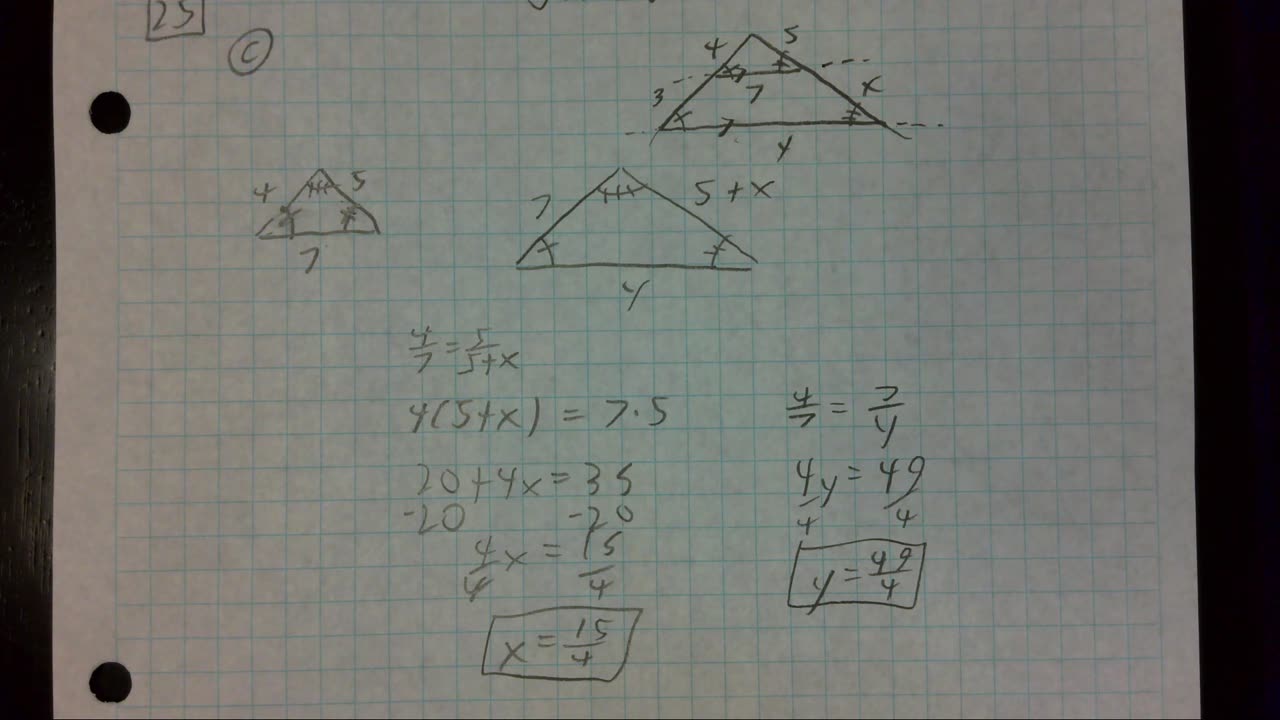 25
C
4 5
3 7 x
y
4 5
7
7 5+x
y
4/7 = 5/5+x
4(5+x) = 7·5
20+4x=35
-20 -20
4/4 x = 15/4
x = 15/4
4/7 = 7/y
4y/4 = 49/4
y = 49/4